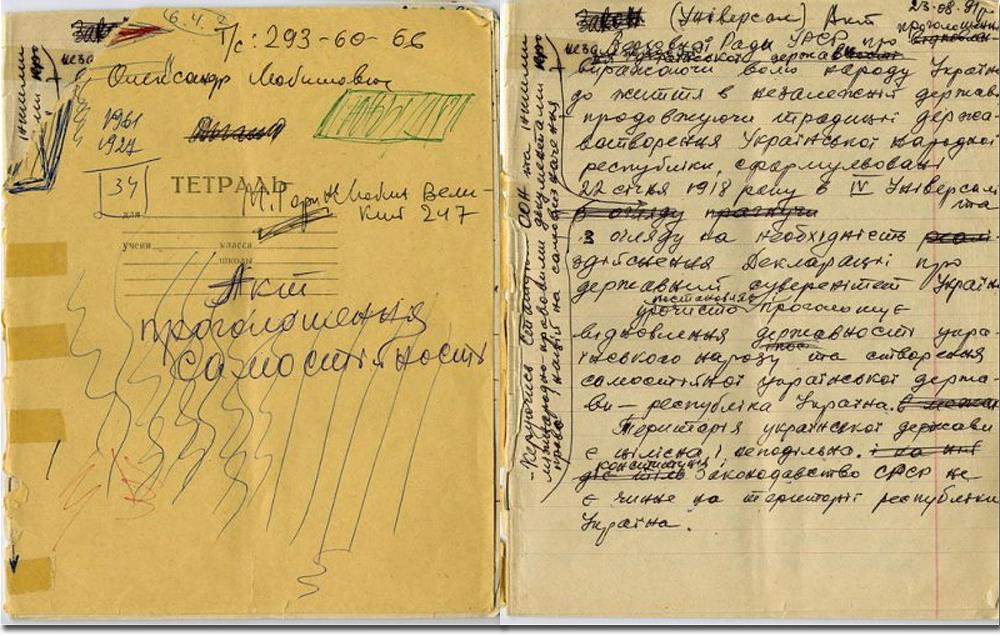 6.4.2
Т/с: 293-60-66
Олександр Любимович
1961
1927
34
ТЕТРАДЬ
М. Горин Любин Вели-
кий 247
для
учени класса
школы
Акт
проголошення
самостійності
23-08-91р
Закон (Універсал) Акт
проголошення
Верховної Ради УРСР про
української держав
виражаючи волю народу Україн
до життя в незалежній держав
продовжуючи традиції держа-
вотворення Української народної
республіки, сформульовані
22 січня 1918 року в IV Універсалі
та
в огляду
з огляду на необхідність
здійснення Декларації про
державний суверенітет Україн
урочисто проголошує
відновлення державності укра-
їнського народу та створення
самостійної української держа-
ви — республіка Україна. в межах
Територія української держави
є цілісна і неподільна.
конституція і
законодавство СРСР не
є чинне на території республіки
Україна.
-керуючись Статутом ООН та іншими
міжнародно-правовими документами про
право націй на самовизначення